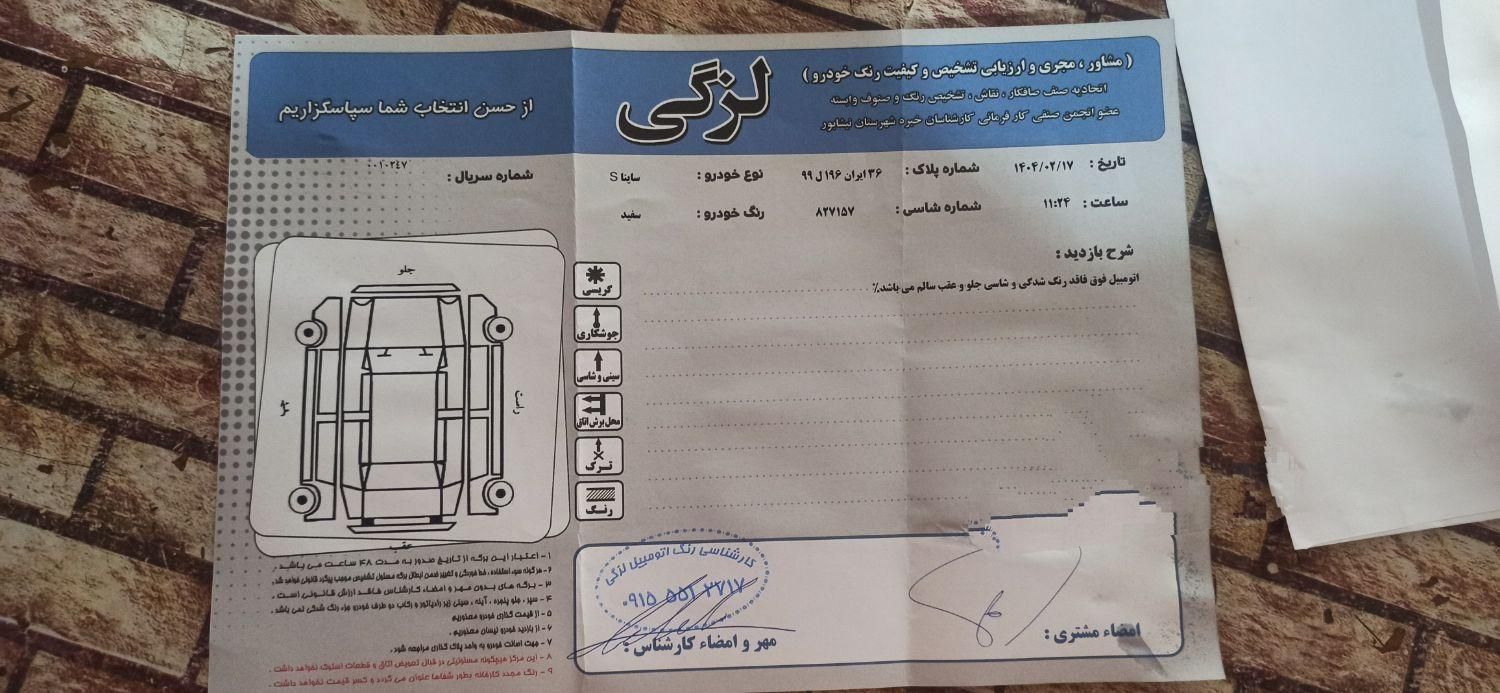 ( مشاور ، مجری و ارزیابی تشخیص و کیفیت رنگ خودرو )
اتحادیه صنف صافکار ، نقاش ، تشخیص رنگ و صنوف وابسته
عضو انجمن صنفی کارفرمائی کارشناسان خبره شهرستان نیشابور
لزگی
از حسن انتخاب شما سپاسگزاریم
تاریخ : ۱۴۰۴/۰۲/۱۷ شماره پلاک : ۳۶ ایران ۱۹۶ ل ۹۹ نوع خودرو : ساینا S شماره سریال : ۰۰۱۰۲۴۷
ساعت : ۱۱:۲۴ شماره شاسی : ۸۲۷۱۵۷ رنگ خودرو : سفید
شرح بازدید :
اتومبیل فوق فاقد رنگ شدگی و شاسی جلو و عقب سالم می باشد.٪
گریسی
جوشکاری
سینی و شاسی
محل برش اتاق
ترک
رنگ
جلو
راست
چپ
عقب
۱ - اعتبار این برگه از تاریخ صدور به مدت ۴۸ ساعت می باشد .
۲- هر گونه سوء استفاده ، خط خوردگی و تغییر ضمن ابطال برگه مسئول تشخیص موجب پیگرد قانونی خواهد شد .
۳ - برگه های بدون مهر و امضاء کارشناس فاقد ارزش قانونی است .
۴ - سپر ، جلو پنجره ، آینه ، سینی زیر رادیاتور و رکاب دو طرف خودرو جزء رنگ شدگی نمی باشد .
۵ - از قیمت گذاری خودرو معذوریم
۶ - از بازدید خودرو نیسان معذوریم .
۷ - جهت اصالت خودرو به واحد پلاک گذاری مراجعه شود .
۸ - این مرکز هیچگونه مسئولیتی در قبال تعویض اتاق و قطعات استوک نخواهد داشت .
۹ - رنگ مجدد کارخانه بطور شفاها عنوان می گردد و کسر قیمت نخواهد داشت .
کارشناسی رنگ اتومبیل لزگی
۰۹۱۵ ۵۵۱ ۲۷۱۷
مهر و امضاء کارشناس :
امضاء مشتری :